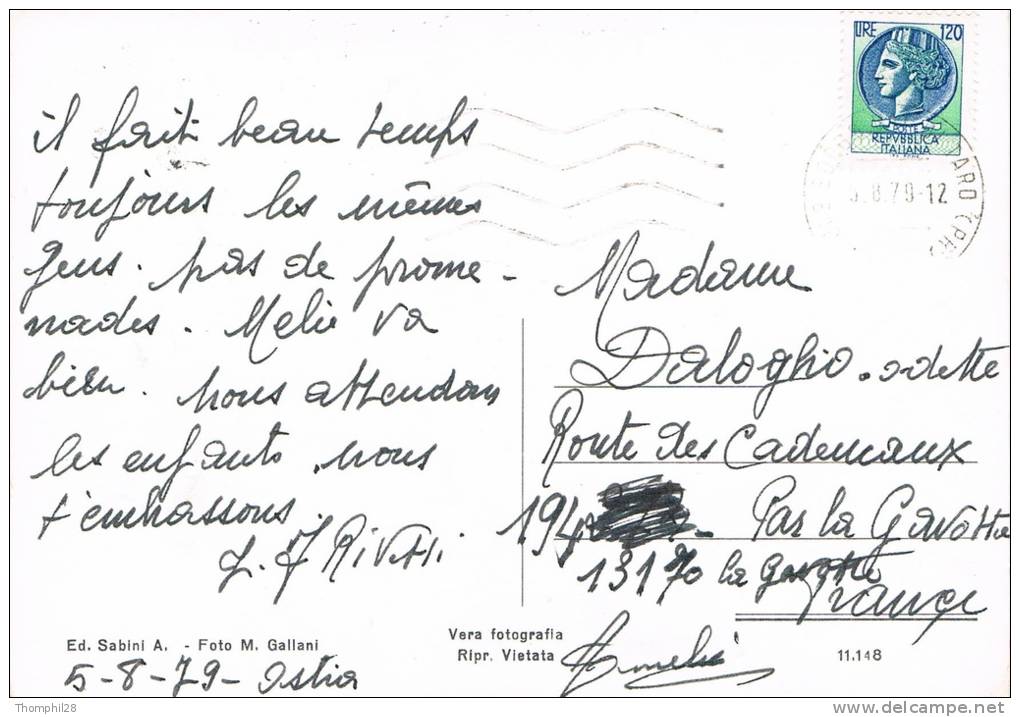 il fait beau temps
toujours les mêmes
gens. pas de prome-
nades. Melie va
bien. nous attendons
les enfants. nous
t'embrassons.
LIRE 120
POSTE
REPVBBLICA
ITALIANA
.8.79-12
Madame
Daloghio. odette
Route des Cademaux
194
Par la Gavotte
13170 la gavotte
France
Ed. Sabini A. - Foto M. Gallani
5-8-79- Ostia
Vera fotografia
Ripr. Vietata
11.148
Thomphil28
www.delcampe.net